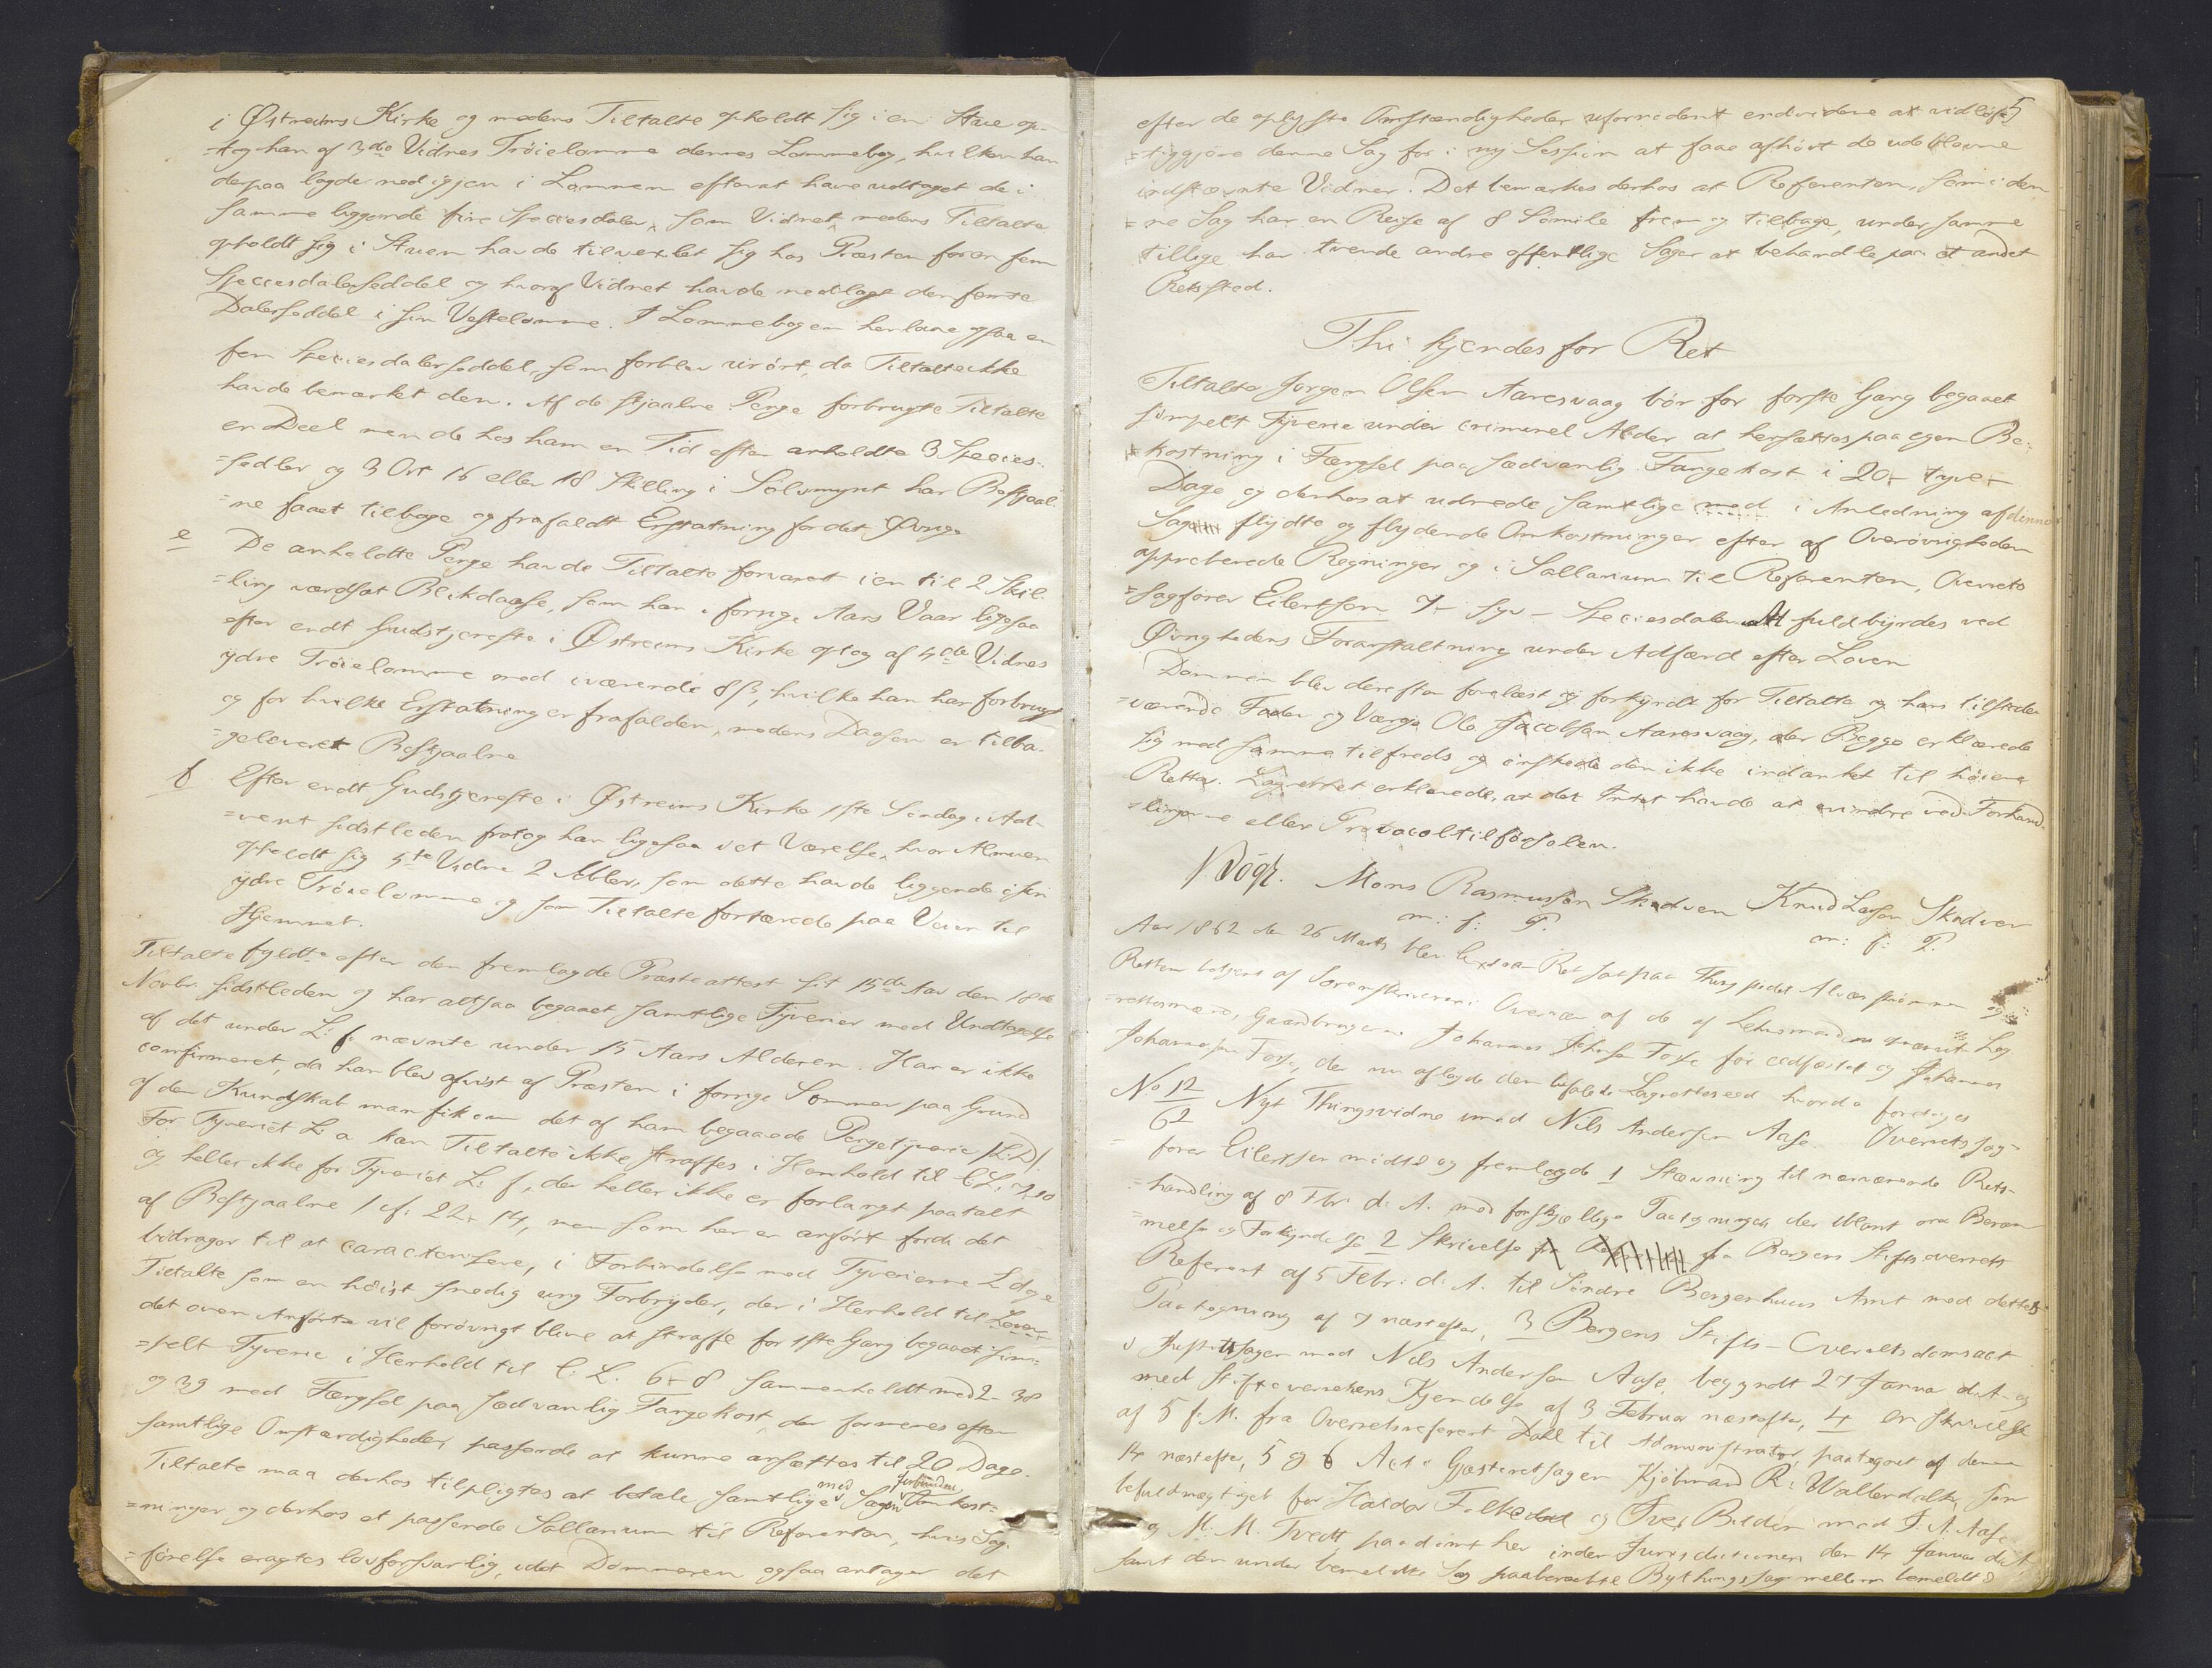 i Østreims Kirke og medens Tiltalte opholdt sig i en Stue op-
=tog han af 3die Vidnes Trøielomme dennes Lommebog, hvilken han
derpaa lagde ned igjen i Lommen efterat have udtaget de i
samme liggende fire Speciesdaler, som Vidnet, medens Tiltalte
opholdt sig i Stuen havde tilvexlet sig hos Præsten for en fem
Speciesdalerseddel og hvoraf Vidnet havde nedlagt den femte
Dalerseddel i sin Vestelomme. I Lommebogen henlaae ogsaa en
fem Speciesdalerseddel, som forblev urørt, da Tiltalte ikke
havde bemærket den. Af de stjaalne Penge forbrugte Tiltalte
en Deel men de hos ham en Tid efter anholdte 3 Species-
=sedler og 3 Ort 16 eller 18 Skilling i Sølvmynt har Bestjaal
=ne faaet tilbage og frafaldt Erstatning for det Øvrige
e De anholdte Penge havde Tiltalte forvaret i en til 2 Skil-
=ling værdsat Blikdaase, som han i forrige Aars Vaar ligesaa
efter endt Gudstjeneste i Østreims Kirke optog af 4de Vidnes
ydre Trøielomme med iværende 8 ß, hvilke han har forbrugt
og for hvilke Erstatning er frafalden, medens Daasen er tilba-
=geleveret Bestjaalne
f Efter endt Gudstjeneste i Østreims Kirke 1ste Søndag i Ad-
=vent sidstleden fratog han ligesaa i et Værelse, hvor Almuen
opholdt sig 5te Vidne 2 Æbler, som dette havde liggende i sin
ydre Trøielomme og som Tiltalte fortærede paa Veien til
Hjemmet.
Tiltalte fyldte efter den fremlagde Præsteattest sit 15de Aar den 18de
Novbr. sidstleden og har altsaa begaaet samtlige Tyverier med Undtagelse
af det under L: f. nævnte under 15 Aars Alderen. Han er ikke
confirmeret, da han blev afvist af Præsten i forrige Sommer paa Grund
af den Kundskab man fik om det af ham begaaede Pengetyverie /L: D/.
For Tyveriet L: a kan Tiltalte ikke straffes i Henhold til C L: 7, 10
og heller ikke for Tyveriet L: f, der heller ikke er forlangt paatalt
af Bestjaalne / cf: 22 - 14, men som her er anført fordi det
bidrager til at caracterisere, i Forbindelse med Tyverierne L d og e
Tiltalte som en høist snedig ung Forbryder, der i Henhold til Loven
det oven Anførte vil forøvrigt blive at straffe for 1ste Gang begaaet sim=
=pelt Tyverie i Henhold til C. L. 6 - 8 sammenholdt med 2 - 38
og 39 med Fængsel paa sædvanlig Fangekost, der formenes efter
samtlige Omstændigheder passende at kunne ansættes til 20 Dage.
Tiltalte maa derhos tilpligtes at betale samtlige med Sagen forbundne Omkost=
=ninger og derhos et passende Sallarium til Referenten, hvis Sag-
=førelse eragtes lovforsvarlig, idet Dommeren ogsaa antager det
5
efter de oplyste Omstændigheder ufornødent endvidere at vidløf-
=tiggjøre denne Sag for i ny Session at faae afhørt de udeblevne
indstævnte Vidner. Det bemærkes derhos at Referenten, som i den-
=ne Sag har en Reise af 8 Sømile frem og tilbage, under samme
tillige har tvende andre offentlige Sager at behandle paa et andet
Retssted.
Thi kjendes for Ret
Tiltalte Jørgen Olsen Aaresvaag bør for første Gang begaaet
simpelt Tyverie under criminel Alder at hensættes paa egen Be-
=kostning i Fængsel paa sædvanlig Fangekost i 20 - tyve -
Dage og derhos at udrede samtlige med i Anledning af denne
Sag flydte og flydende Omkostninger efter af Overøvrigheden
approberede Regninger og i Sallarium til Referenten, Overrets
=sagfører Eilertsen 7 - syv - Speciesdaler. At fuldbyrdes ved
Øvrighedens Foranstaltning under Adfærd efter Loven
Dommen blev derefter forelæst og forkyndt for Tiltalte og hans tilstede-
=værende Fader og Værge Ole Jacobsen Aaresvaag, der Begge erklærede
sig med samme tilfreds og ønskede den ikke indanket til høiere
Retter. Lagrettet erklærede, at det Intet havde at erindre ved Forhand-
=lingerne eller Protocoltilførselen.
Mons Rasmussen Skadven Knud Larsen Skadven
m: f: P. m: f: P.
Aar 1862 den 26 Marts blev Extra Ret sat paa Thingstedet Alversstrømmen og
Retten betjent af Sorenskriveren i Overvær af de af Lehnsmanden opnævnte Lag-
=rettesmænd, Gaardbrugerne Johannes Johnsen Fosse før eedfæstet og Johannes
Johannesen Fosse, der nu aflagde den befalede Lagretteseed hvorda foretoges
No 12/62 Nyt Thingsvidne imod Nils Andersen Aase. Overretssag-
=fører Eilertsen mødte og fremlagde 1 Stævning til nærværende Rets-
=handling af 8 Fbr: d: A. med forskjellige Paategninger der iblant om Beram
=melse og Forkyndelse 2 Skrivelse fra Bergens Stiftsoverrets
Referent af 5 Febr: d: A. til Søndre Bergenhuus Amt med dettes
Paategning af 7 næstefter, 3 Bergens Stifts-Overretsdomsact
i Justitssagen mod Nils Andersen Aase, begyndt 27 Januar d: A: og
med Stiftsoverrettens Kjendelse af 3 Februar næstefter, 4 en Skrivelse
af 5 f: M. fra Overretsreferent Dahl til Administrator, paategnet af denne
14 næstefter, 5 og 6 Act i Gjæsteretssagen Kjøbmand R: Wallendahl, som
befuldmægtiget for Haldor Folkedal og Iver Bolden mod J. A. Aase
og M: M. Tvedt, paadømt her inden Jurisdictionen den 14 Januar d: A,
samt den under bemeldte Sag paaberaabte Bythingssag mellem bemeldte